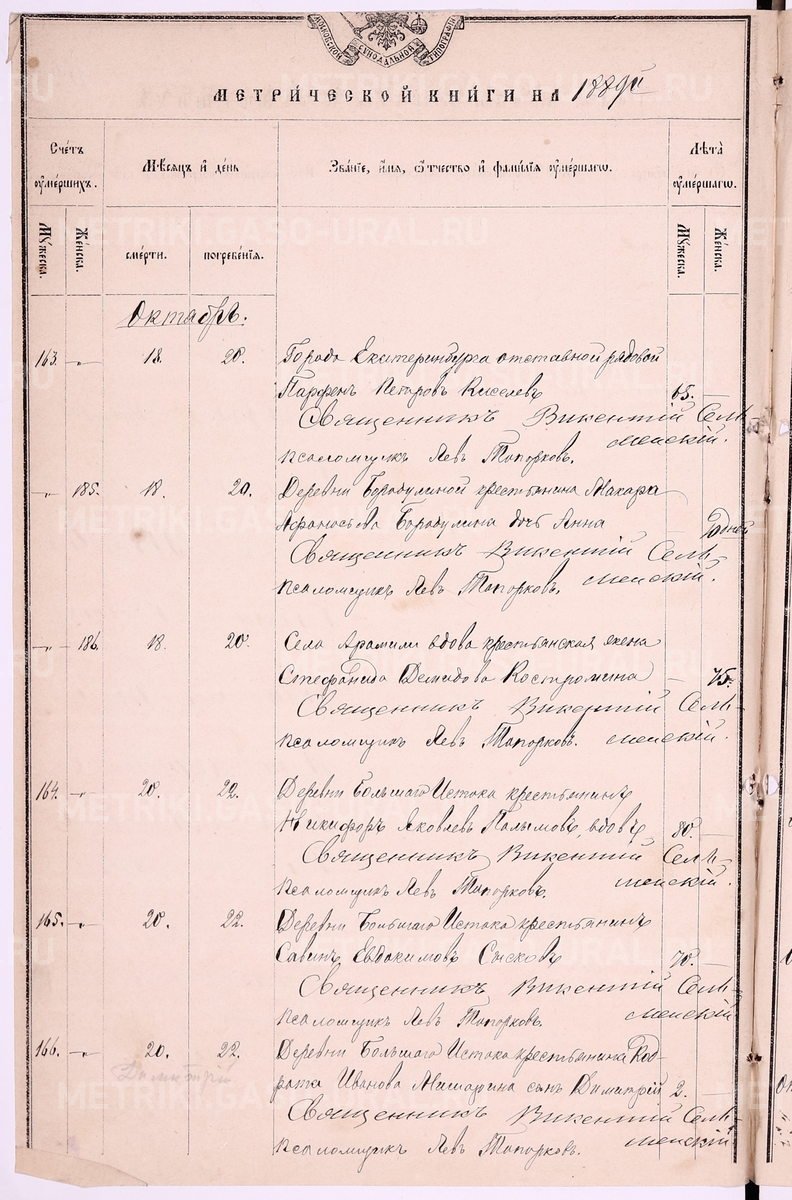 МОСКОВСКОЙ СѴНОДАЛЬНОЙ ТИПОГРАФІИ
МЕТРИ́ЧЕСКОЙ КНИ́ГИ НА 1889й
Сче́тъ ᲂу҆ме́ршихъ.
Мѣ́сяцъ и҆ де́нь
Зва́нїе, и҆́мѧ, ѻ҆́тчество и҆ фами́лїѧ ᲂу҆ме́ршагѡ.
Лѣ́та ᲂу҆ме́ршагѡ.
Му́жеска.
Же́нска.
сме́рти.
погребе́нїѧ.
Му́жеска.
Же́нска.
Октябрь.
163. -"- 18. 20. Города Екатеринбурга отставной рядовой
Парфенъ Петровъ Киселевъ 65. —
Священникъ Викентій Сель-
менскій.
псаломщикъ Левъ Топорковъ.
-"- 185. 18. 20. Деревни Бородулиной крестьянина Макара
Афонасьева Бородулина дочь Анна — дней
Священникъ Викентій Сель-
менскій.
псаломщикъ Левъ Топорковъ.
-"- 186. 18. 20. Села Арамили вдова крестьянская жена
Стефанида Демидова Костромина — 75.
Священникъ Викентій Сель-
менскій.
псаломщикъ Левъ Топорковъ.
164. -"- 20. 22. Деревни Большаго Истока крестьянинъ
Никифоръ Яковлевъ Палымовъ, вдовъ 80. —
Священникъ Викентій Сель-
менскій.
псаломщикъ Левъ Топорковъ.
165. -"- 20. 22. Деревни Большаго Истока крестьянинъ
Савинъ Евдокимовъ Сысковъ 70. —
Священникъ Викентій Сель-
менскій
псаломщикъ Левъ Топорковъ.
166. -"- 20. 22. Деревни Большаго Истока крестьянина Код-
рата Ивановa Мишарина сынъ Димитрій 2. —
Димитрій
Священникъ Викентій Сель-
менскій
псаломщикъ Левъ Топорковъ.
METRIKI.GASO-URAL.RU